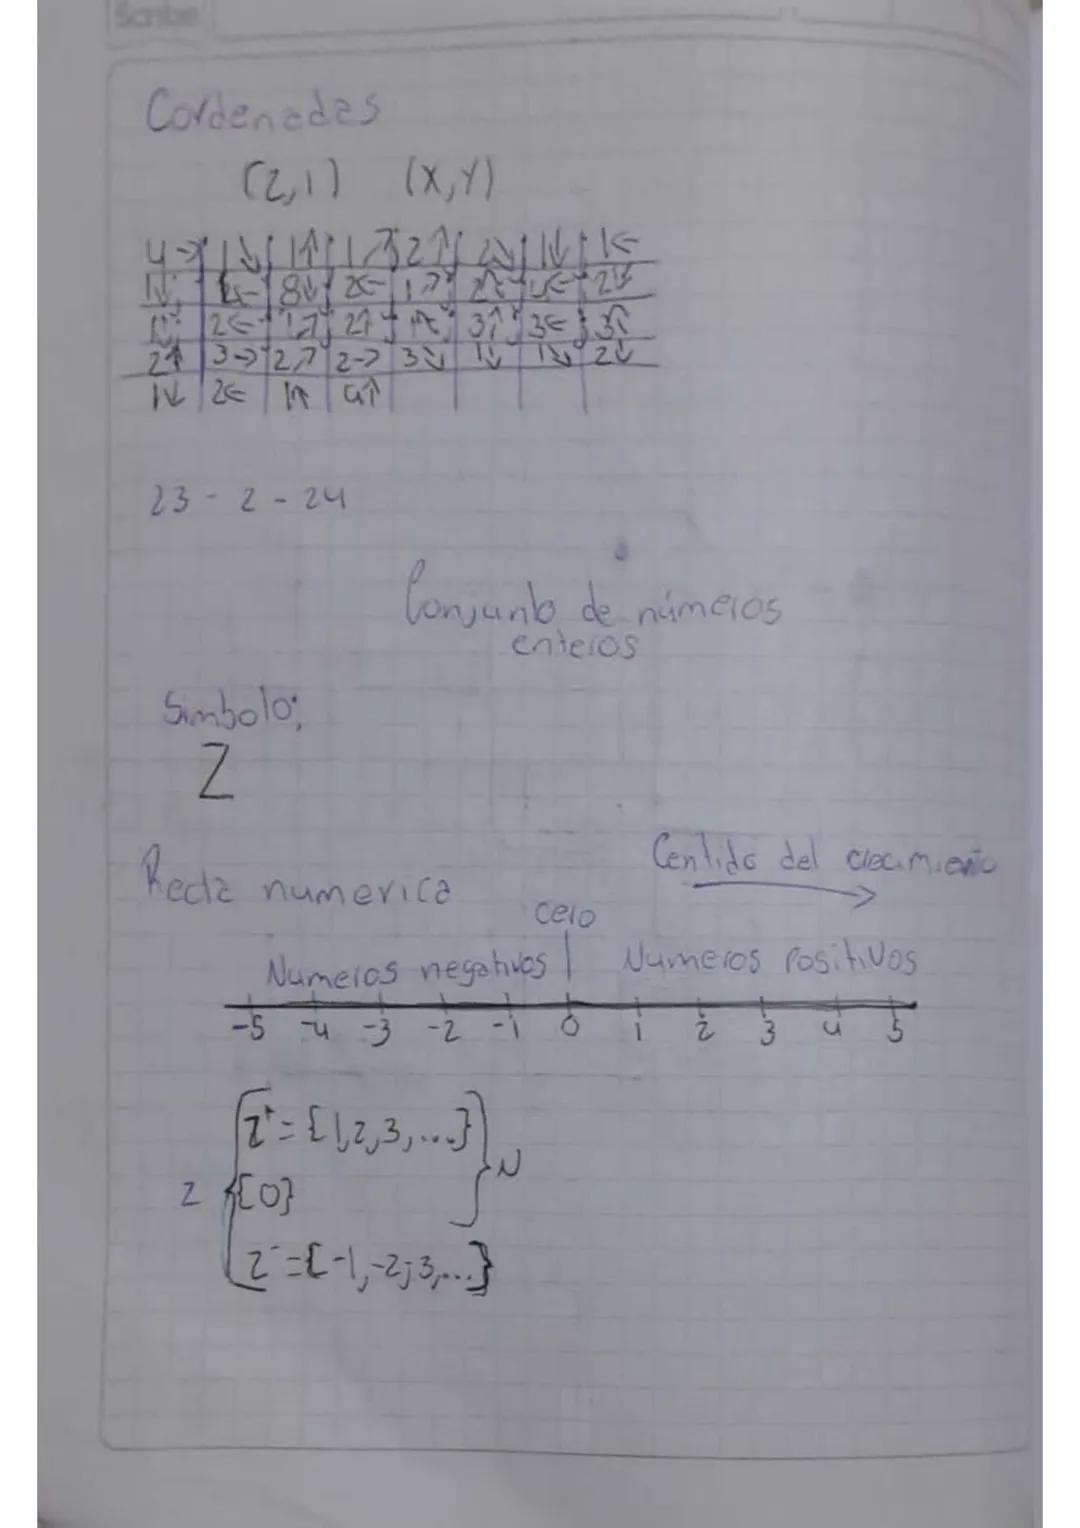 Scribe
Cordenadas
(2,1) (X,Y)
4→ 1↘ 1↑ 1↗ 2↑ 2↘ 1↓ 1←
1↓ 8↓ 2← 1↗ 4← 2↓
2← 1↗ 2↑ 3↑ 3← 3↑
2↑ 3→ 2↗ 2→ 3↘ 1↓ 1↘ 2↓
1↓ 2← 1↑ 4↑
23-2-24
Conjunto de números
enteros
Simbolo:
Z
Centido del crecimiento
Recta numerica
cero
Numeros negativos Numeros Positivos
-5 -4 -3 -2 -1 0 1 2 3 4 5
Z⁺={1,2,3,...}
Z {0} N
Z⁻={-1,-2,-3,...}